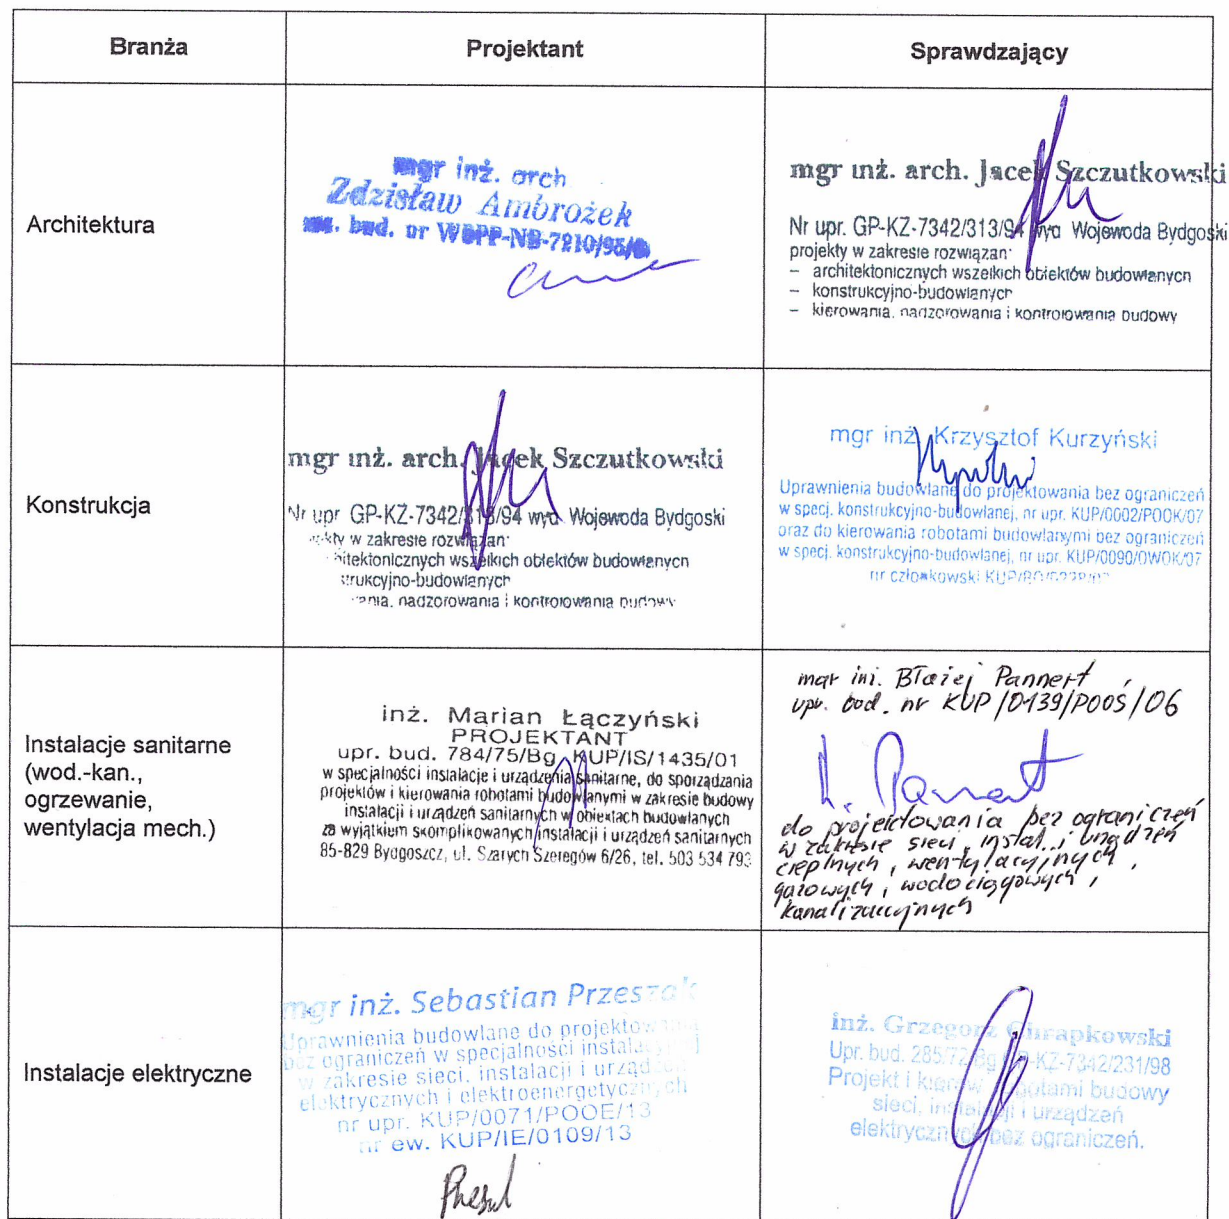 Branża
Projektant
Sprawdzający
Architektura
mgr inż. arch
Zdzisław Ambrożek
bud. nr WBPP-NB-7210/95/
mgr inż. arch. Jacek Szczutkowski
Nr upr. GP-KZ-7342/313/94 wyd Wojewoda Bydgoski
projekty w zakresie rozwiązań
– architektonicznych wszelkich obiektów budowlanych
– konstrukcyjno-budowlanych
– kierowania, nadzorowania i kontrolowania budowy
Konstrukcja
mgr inż. arch. Jacek Szczutkowski
Nr upr GP-KZ-7342/313/94 wyd Wojewoda Bydgoski
w zakresie rozwiązań
architektonicznych wszelkich obiektów budowlanych
konstrukcyjno-budowlanych
nadzorowania i kontrolowania budowy
mgr inż. Krzysztof Kurzyński
Uprawnienia budowlane do projektowania bez ograniczeń
w specj. konstrukcyjno-budowlanej, nr upr. KUP/0002/POOK/07
oraz do kierowania robotami budowlanymi bez ograniczeń
w specj. konstrukcyjno-budowlanej, nr upr. KUP/0090/OWOK/07
nr członkowski
Instalacje sanitarne
(wod.-kan.,
ogrzewanie,
wentylacja mech.)
inż. Marian Łączyński
PROJEKTANT
upr. bud. 784/75/Bg KUP/IS/1435/01
w specjalności instalacje i urządzenia sanitarne, do sporządzania
projektów i kierowania robotami budowlanymi w zakresie budowy
instalacji i urządzeń sanitarnych w obiektach budowlanych
za wyjątkiem skomplikowanych instalacji i urządzeń sanitarnych
85-829 Bydgoszcz, ul. Szarych Szeregów 6/26, tel. 503 534 793
mgr inż. Błażej Pannert
upr. bud. nr KUP/0139/POOŚ/06
Pannert
do projektowania bez ograniczeń
w zakresie sieci, instal. i urządzeń
cieplnych, wentylacyjnych,
gazowych, wodociągowych,
kanalizacyjnych
Instalacje elektryczne
mgr inż. Sebastian Przeszlak
Uprawnienia budowlane do projektowania
bez ograniczeń w specjalności instalacyjnej
w zakresie sieci, instalacji i urządzeń
elektrycznych i elektroenergetycznych
nr upr. KUP/0071/POOE/13
nr ew. KUP/IE/0109/13
inż. Grzegorz Chrapkowski
Upr. bud. 285/72/Bg KZ-7342/231/98
Projekt i kierow. robotami budowy
sieci, instalacji i urządzeń
elektrycznych bez ograniczeń.